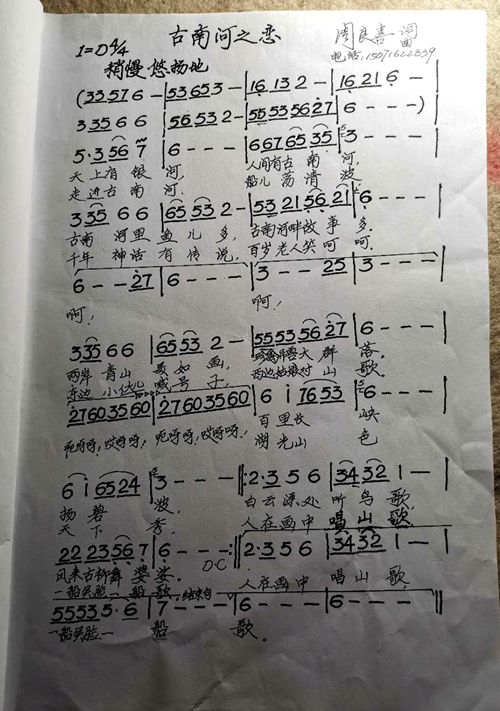 古南河之恋 周良喜 词曲
1=D 4/4 电话:15071622839
稍慢 悠扬地
(33576-|53653-|16132-|16216-|
33566|56532-|55535627|6---)
5·3567|6---|6676535|3---
天上有银河, 人间有古南河,
走进古南河, 船儿荡清波
33566|65532-|53215621|6---
古南河里鱼儿多 古南河畔故事多.
千年神话有传说, 百岁老人笑呵呵.
6--27|6---|3--25|3---
啊! 啊!
33566|65532-|55535627|6---
两岸青山美如画, 大群落.
喊号子, 山歌
27603560|27603560|6i7653|6---
百里长峡
湖光山色
6i6524|3---‖:2·356|34321-|
扬碧波. 白云深处听鸟歌,
天下秀. 人在画中唱山歌,
2223567|6---:‖2·356|34321-|
D.C
风来古柳舞婆娑. 人在画中唱山歌,
一船笑脸一船歌. 结束句
55535·6|7---|6---|6---‖
一船笑脸一船歌。